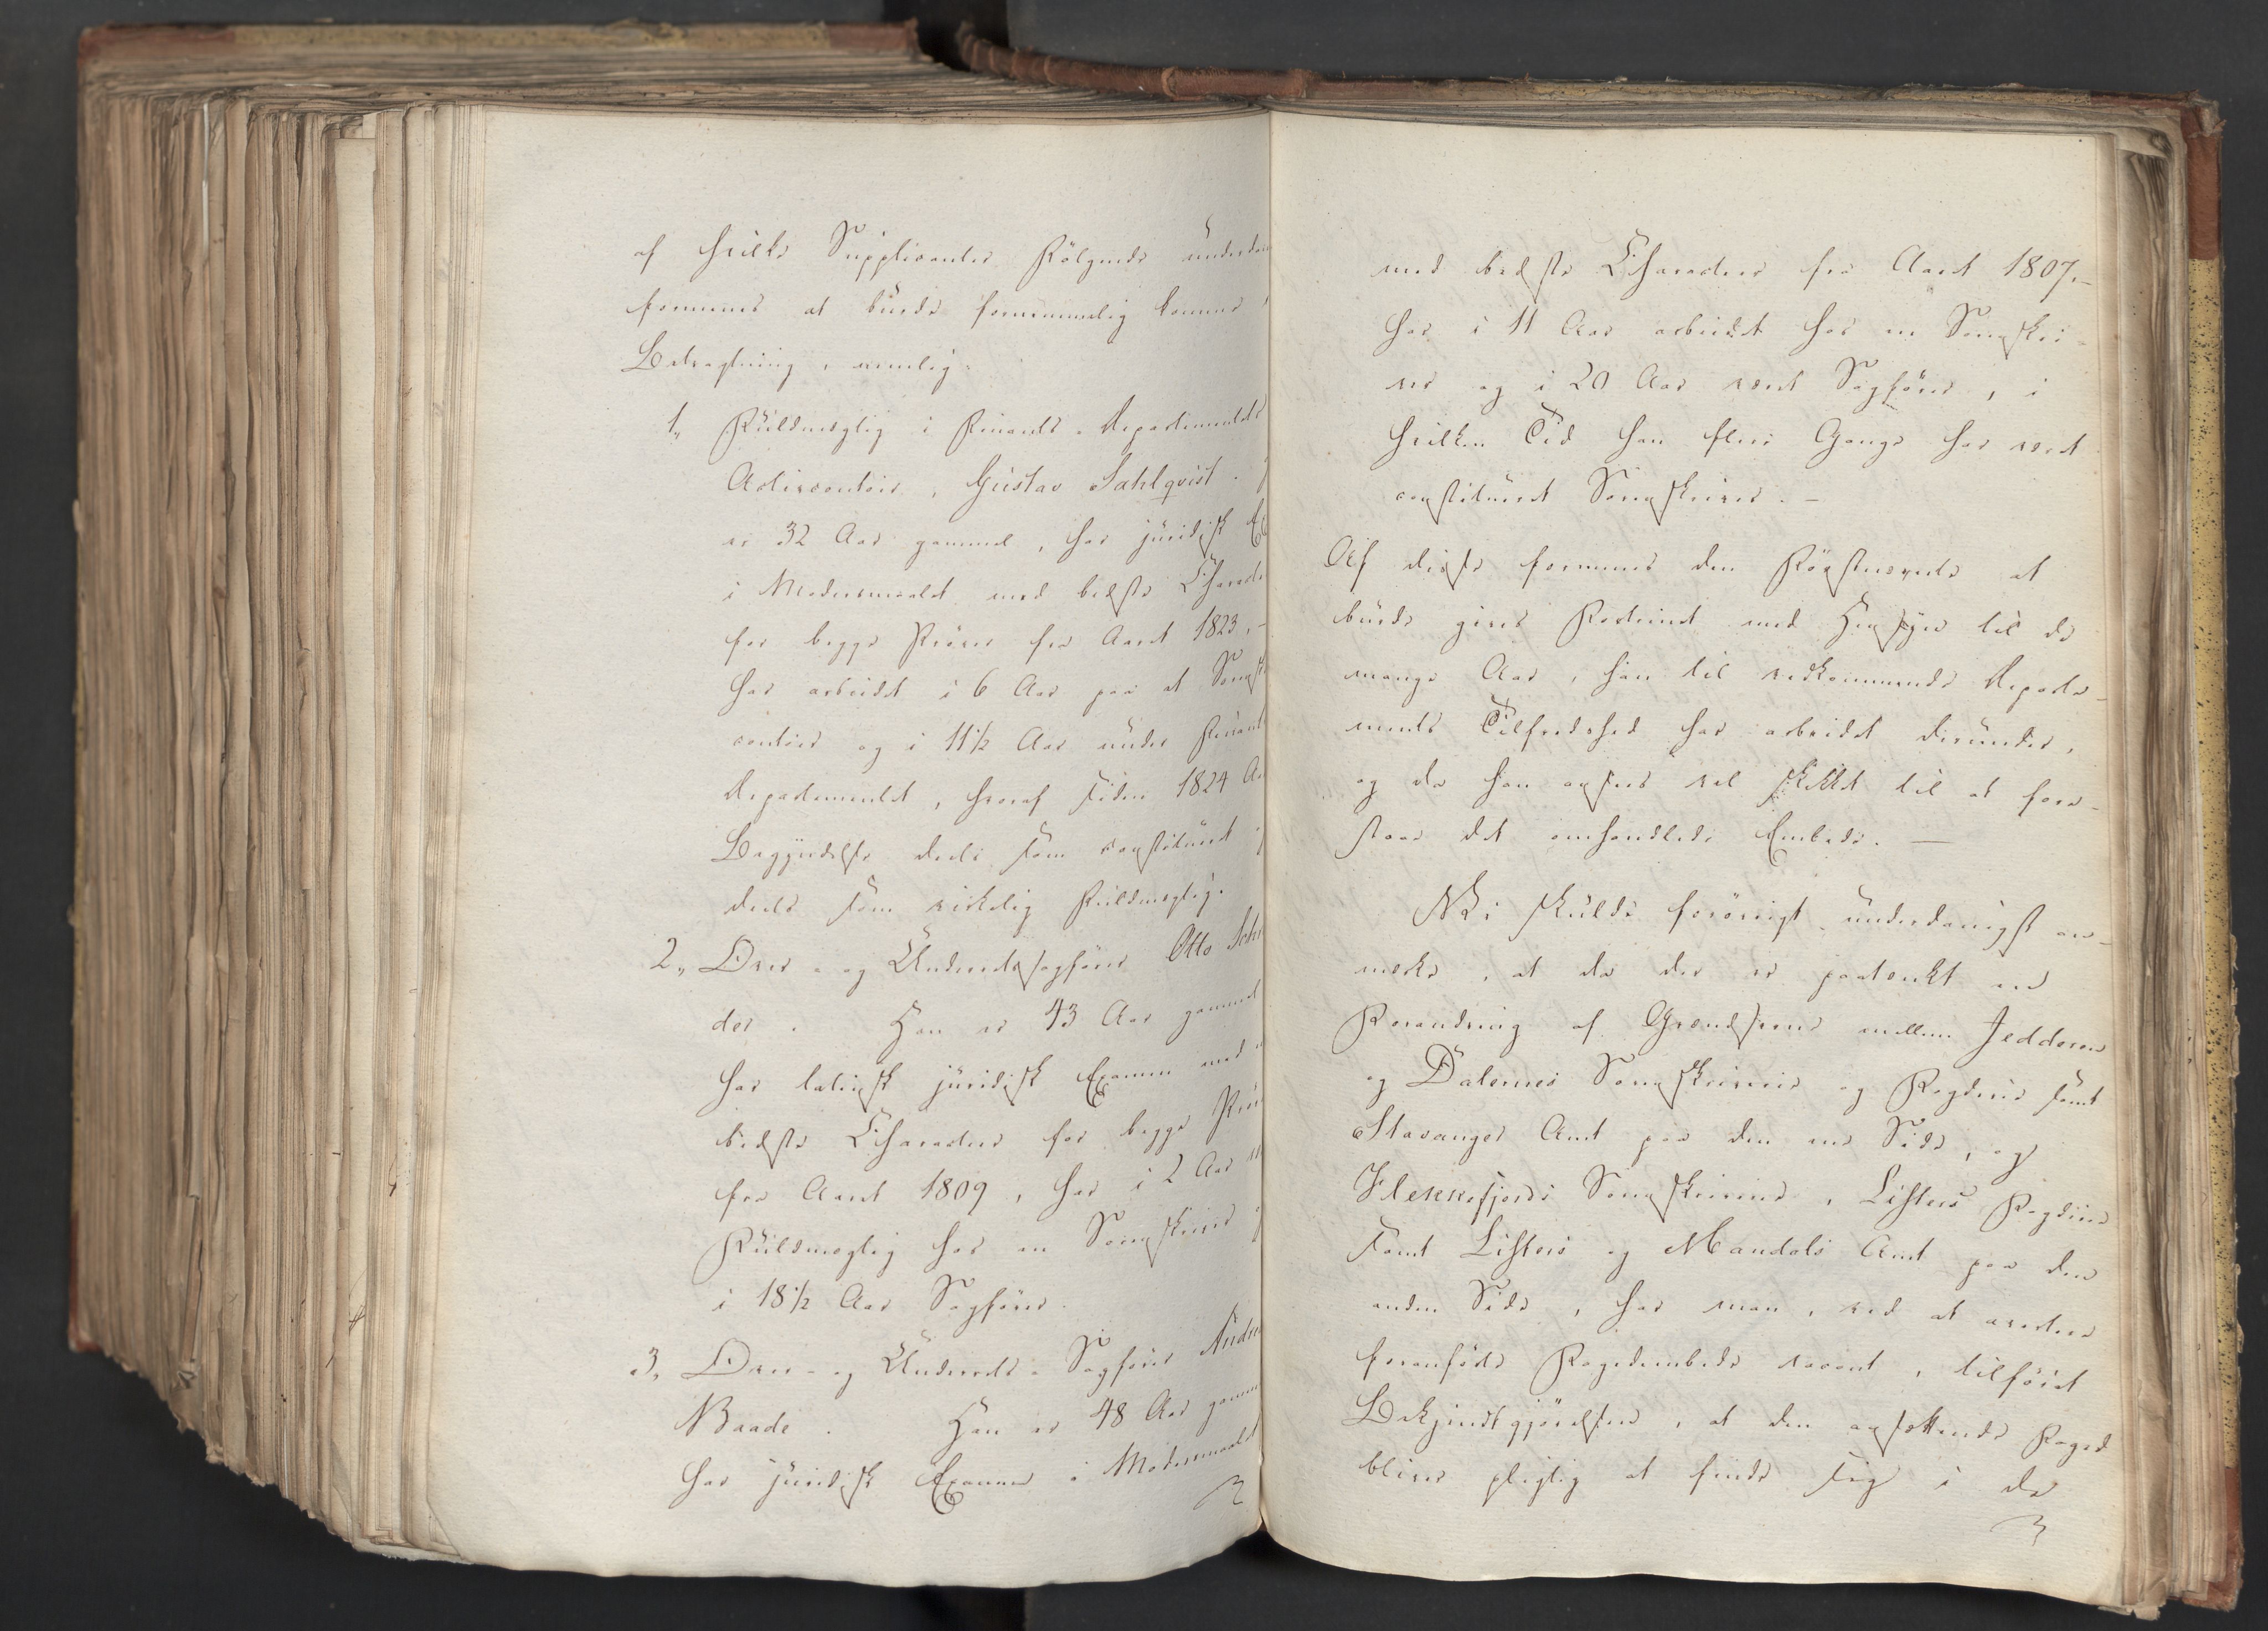 af hvilke Supplicanter Følgende underdan
formenes at burde fornemmelig komme i
Betragtning, nemlig:
1, Fuldmægtig i Finants-Departementets
Gustav Sahlqvist.
er 32 Aar gammel, har juridisk Ex
i Modersmaalet med bedste Characte
for begge Prøver fra Aaret 1823,-
har arbeidet i 6 Aar paa et Sorensk
contoir og i 11 1/2 Aar under Finants
Departementet, hvoraf siden 1824 A
Begyndelse deels som constitueret
deels som virkelig Fuldmægtig.
2, Over- og Underretssagfører Otto Schr
der. Han er 43 Aar gammel
har latinsk juridisk Examen med
bedste Characteer for begge Prøv
fra Aaret 1809, har i 2 Aar
Fuldmægtig hos en Sorenskriver
i 18 1/2 Aar Sagfører.
3, Over- og Underrets-Sagfører Andre
Baade. Han er 48 Aar gamm
har juridisk Examen i Modersmaalet
med bedste Characteer fra Aaret 1807,-
har i 11 Aar arbeidet hos en Sorenskri-
ver og i 20 Aar været Sagfører, i
hvilken Tid han flere Gange har været
constitueret Sorenskriver.-
Af disse formenes den Førstnævnte at
burde gives Fortrinet med Hensyn til de
mange Aar, han til vedkommende Departe-
ments Tilfredshed har arbeidet derunder,
og da han ansees vel skikket til at fore-
staae det omhandlede Embede.-
NB: skulde forøvrigt underdanigst an-
mærke, at da der er paatænkt en
Forandring af Grændserne mellem Jedderens
og Dalernes Sorenskriverie og Fogderie samt
Stavanger Amt paa den ene Side, og
Flekkefjords Sorenskriverie, Listers Fogderie
samt Listers og Mandals Amt paa den
anden Side, har man, ved at avertere
foranførte Fogedembede vacant, tilføiet
Bekjendtgjørelsen, at den ansættende Foged
bliver pligtig at finde sig i de